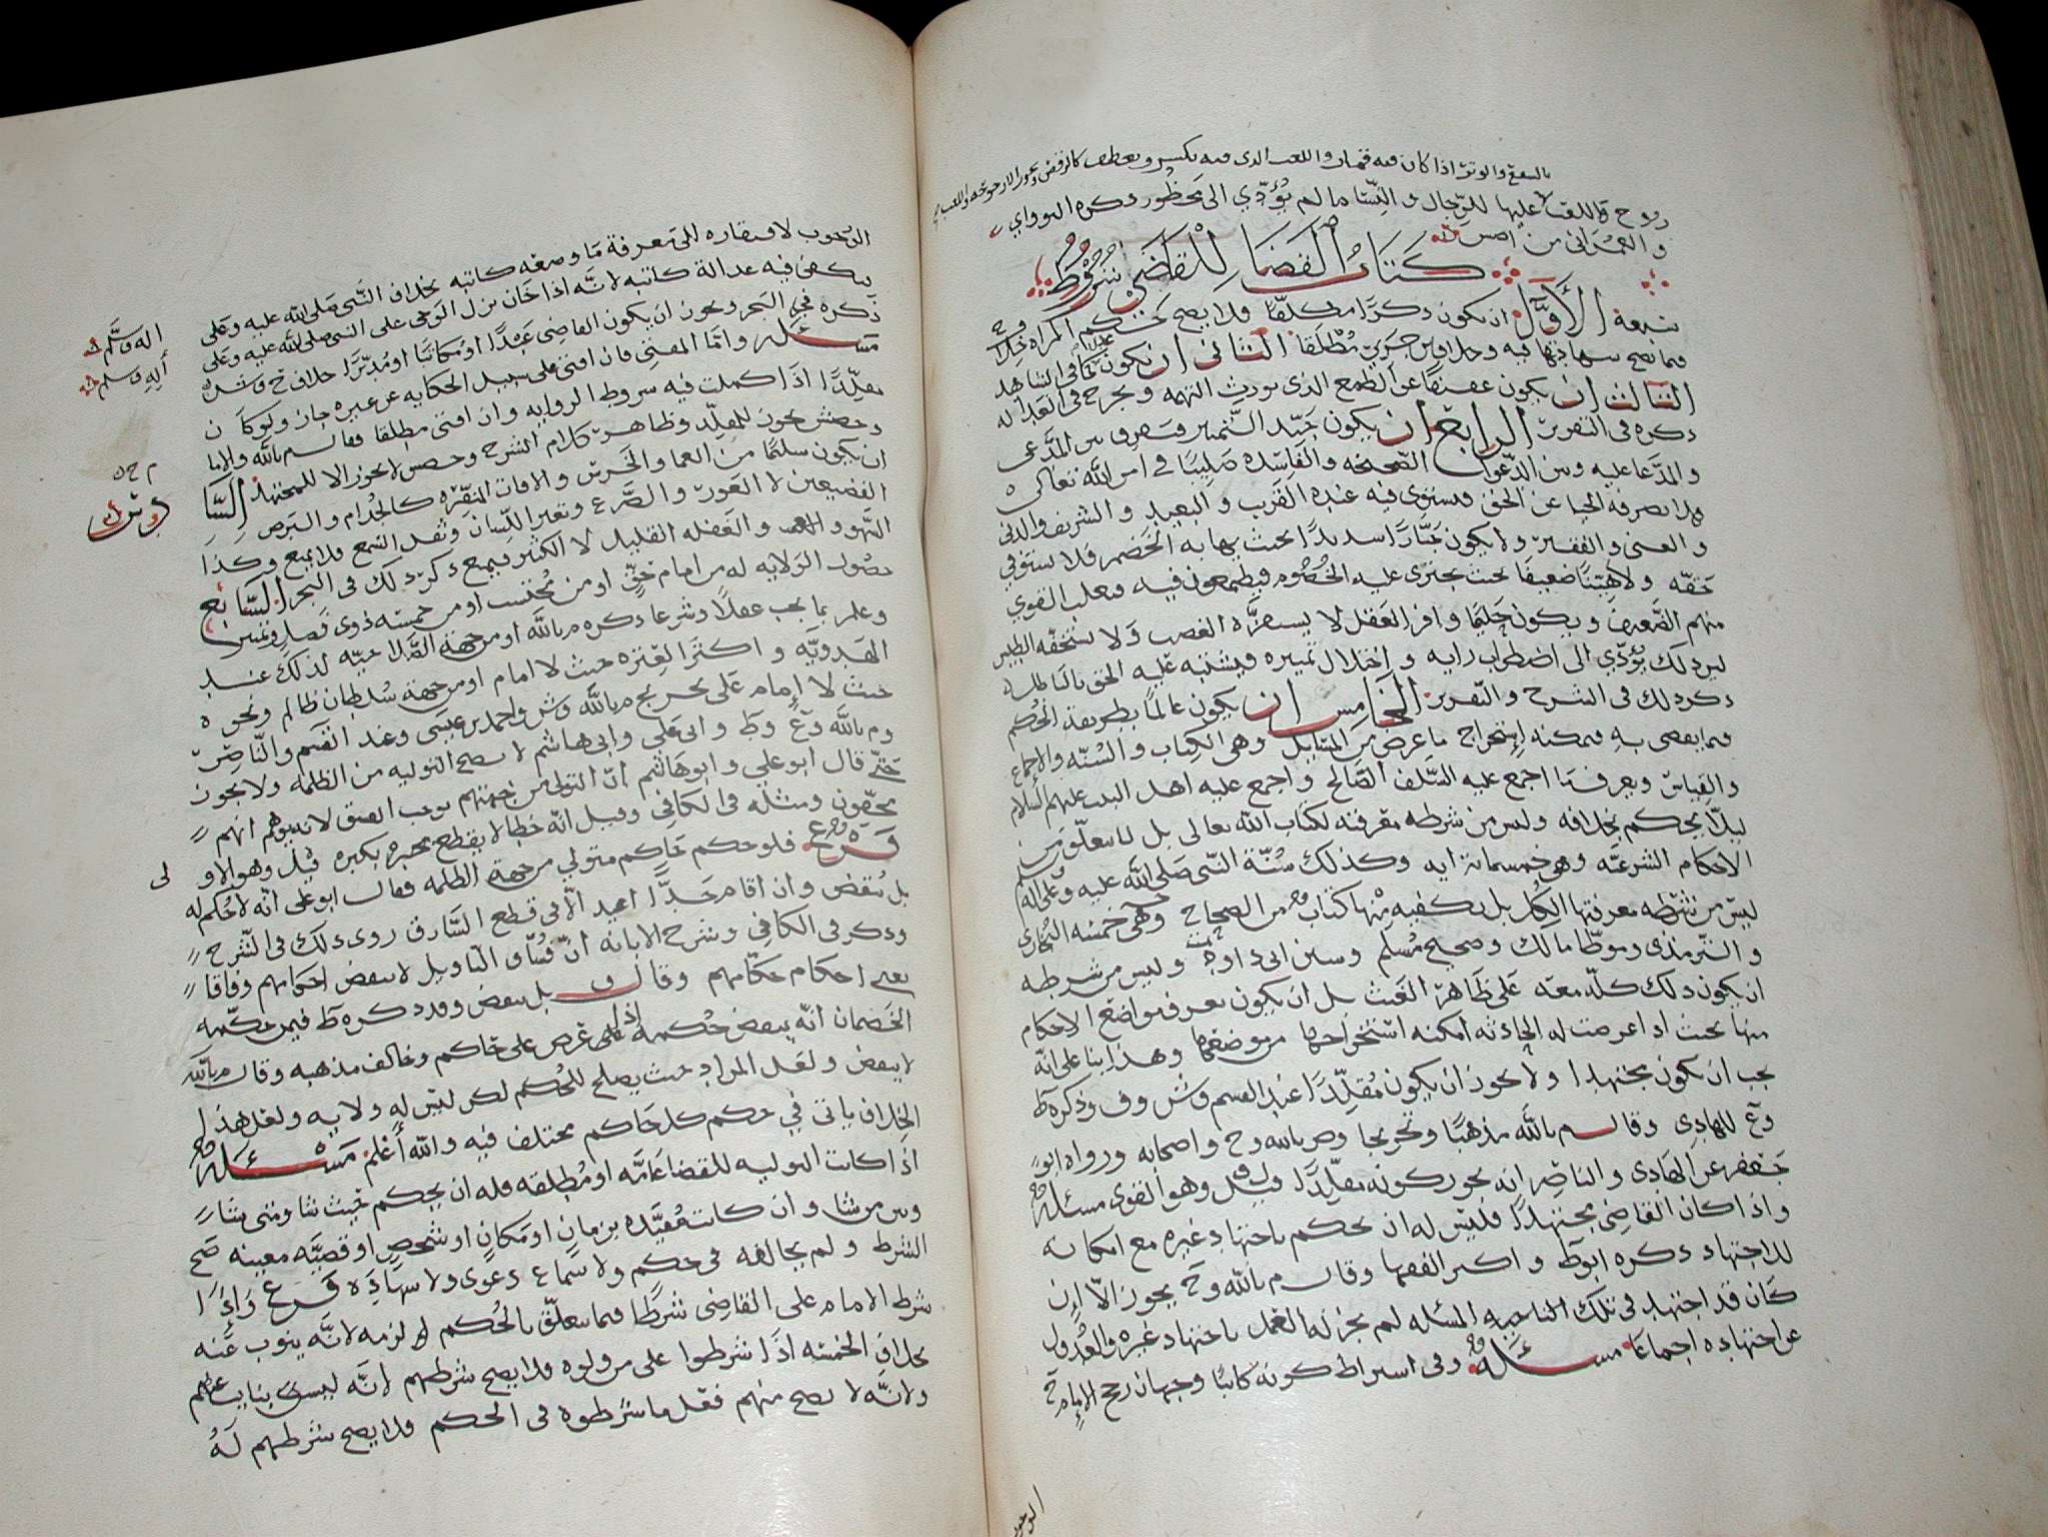 بالشفع والوتر اذا كان فيه قمار واللعب الذي فيه تكسير وتعطف كالرقص
روح واللعب عليها للرجال والنسا ما لم يؤدي الى محظور ذكره النواوي
والعمراني من اصش
كتاب القضا للقاضي شروط
سبعة الأول ان يكون ذكرًا مكلفًا فلا يصح تحكم المراه خلاف ح
فيما تصح شهادتها فيه وخلاف بن جرير مطلقا الثاني ان يكون عدلا كما في الشاهد
الثالث ان يكون عفيفًا عن الطمع الذي يورث التهمه ويجرح في العداله
ذكره في التقرير الرابع ان يكون جيّد التمييز فيفرق بين المدّعي
والمدّعا عليه وبين الدّعوا الصّحيحه والفاسده صليبًا في امر الله تعالى
فلا يصرفه الحيا عن الحق فيستوي فيه عنده القريب والبعيد والشريف والدني
والغني والفقير ولا يكون جبّارًا شديدًا بحيث يهابه الخصم فلا يستوفي
حقّه ولا هيّنًا ضعيفًا بحيث يجتري عليه الخصوم فيطمعون فيه فيغلب القوي
منهم الضّعيف ويكون حليمًا وافر العقل لا يستفزّه الغضب ولا يستخفّه الطيش
لين ذلك يؤدّي الى اضطراب رايه واختلال تمييزه فيشتبه عليه الحق بالباطل
ذكر ذلك في الشرح والتقرير الخامس ان يكون عالمًا بطريقة الحكم
فيما يقضي به فيمكنه استخراج ما عرض من المسايل وهي الكتاب والسنّه والاجماع
والقياس ويعرف ما اجمع عليه السّلف الصّالح واجمع عليه اهل البيت عليهم السلام
ليلّا يحكم بخلافه وليس من شرطه معرفته لكتاب الله تعالى بل لما يتعلّق من
الاحكام الشرعيّه وهو خمسمائة ايه وكذلك سُنّة النّبي صلى الله عليه وعلى اله وسلم
ليس من شرطه معرفتها الكل بل يكفيه منها كتاب من الصحاح وهي خمسه البخاري
والتّرمذي وموطّا مالك وصحيح مُسلم وسنن ابي داود وليس من شرطه
ان يكون ذلك كلّه معه على ظاهر الغيب بل ان يكون يعرف مواضع الاحكام
منها بحيث اذا عرضت له الحادثه امكنه استخراجها من موضعها وهذا بنا على انّه
يجب ان يكون مجتهدا ولا يجوز ان يكون مُقلّدًا عند القسم وش وف وذكره ط
وع للهادي وقال م بالله مذهبًا وتخريجا وص بالله وح واصحابه ورواه ابو
جعفر عن الهادي والناصر انه يجوز كونه مقلّدًا قيل ف وهو القوي مسئله
واذا كان القاضي مجتهدًا فليس له ان يحكم باجتهاد غيره مع امكانه
للاجتهاد ذكره ابوط واكثر الفقها وقال م بالله وح يجوز الّا إن
كان قد اجتهد في تلك المسئله لم يجز له العمل باجتهاد غيره والعُدول
عن اجتهاده اجماعًا مسئله وفي اشتراط كونه كاتبًا وجهان رجح الإمام ح
الوجوب لافتقاره الى معرفة ما وضعه كاتبه بخلاف النّبي صلى الله عليه وعلى
اله وسلّم
يكفي فيه عدالة كاتبه لانّه اذا خان نزل الوحي على النبي صلى الله عليه وعلى
آله وسلم
ذكره في البحر ويجوز ان يكون القاضي عبدًا او مُكاتبًا او مُدبّرًا خلاف ح وش
مسئله وامّا المفتي فان افتى على سبيل الحكايه عن غيره جاز ولو كان
مقلّدًا اذا كملت فيه شروط الروايه وان افتى مطلقا فقال م بالله والاما
وحفش يجوز للمقلّد وظاهر كلام الشرح وحص لا يجوز الا للمجتهد السّا
دس
ان يكون سليمًا من العما والخرس والافات المنفّره كالجُذام والبرص
الفضيعين لا العور والصّرع وتغير اللّسان وثقل السّمع فلا يمنع وكذا
السّهو والعمه والغفله القليل لا الكثير فيمنع ذكر ذلك في البحر السّابع
حصول الولايه له من امام حقٍّ او من مُحتسب او من خمسه ذوي فضل وتمييز
وعلم بما يجب عقلًا وشرعا ذكره م بالله او من جهة الصّلاحيّه لذلك عند
الهدويّه واكثر العتره حيث لا امام او من جهة سُلطان ظالم ونحوه
حيث لا إمام على تخريج م بالله وش واحمد بن عيسى وعند القسم والنّاصر
وم بالله وع وط وابي علي وابي هاشم لا يصح التوليه من الظلمه ولا يجوز
حتّى قال ابو علي وابو هاشم انّ التولي من جهتهم يوجب الفسق لانه يوهم انهم
محقّون ومثله في الكافي وقيل انّه خطا لا يقطع بكبره قيل وهو الاولى
فرع فلو حكم حاكم متولي من جهة الظلمه فقال ابو علي انّه لا حُكم له
بل يُنقض وان اقام حدًّا اعيد الّا في قطع السّارق روى ذلك في الشّرح
وذكر في الكافي وشرح الابانه انّ فُسّاق التّاويل لا ينقض احكامهم وفاقا
يعني احكام حكّامهم وقال ف بل ينقض وقد ذكره ط فيمن حكّمه
الخصمان انّه ينقض حُكمه اذا عرض على حاكم وخالف مذهبه وقال م بالله
لا ينقض ولعل المراد حيث يصلح للحُكم لكن ليس له ولايه ولعل هذا
الخلاف ياتي في حكم كل حاكم مختلف فيه والله أعلم مسئله
اذا كانت التوليه للقضا عامّه او مُطلقه فله ان يحكم حيث شا ومتى شا
وبين من شا وان كانت مُقيّده بزمانٍ او مكانٍ او شخصٍ او قضيّه معينه صح
الشرط ولم يخالفه في حكم ولا سماع دعوى ولا شهادة فرع واذا
شرط الامام على القاضي شرطًا فيما يتعلّق بالحُكم لزمه لانّه ينوب عنه
بخلاف الخمسه اذا شرطوا على من ولّوه فلا يصح شرطهم لانّه ليس بنايب عنهم
ولانّه لا يصح منهم فعل ما شرطوه في الحكم فلا يصح شرطهم لهُ